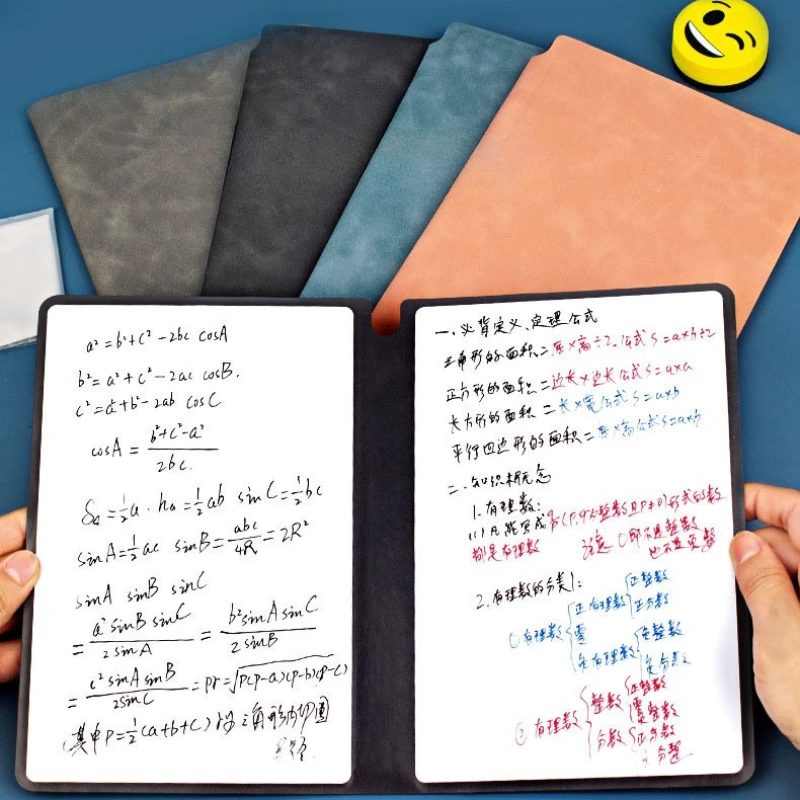 a² = b² + c² - 2bc cosA
b² = a² + c² - 2ac cosB.
c² = a² + b² - 2ab cosC
cosA = (b² + c² - a²) / 2bc.
S△ = ½a · ha = ½ab sinC = ½bc
sinA = ½ac sinB = abc / 4R = 2R²
sinA sinB sinC
= a² sinB sinC / 2sinA = b² sinA sinC / 2sinB
= c² sinA sinB / 2sinC = pr = √p(p-a)(p-b)(p-c)
其中P = ½(a+b+c) 三角形内切圆
一、必背定义、定理公式
三角形的面积=底×高÷2.公式S=a×h÷2
正方形的面积=边长×边长公式S=a×a
长方形的面积=长×宽公式S=a×b
平行四边形的面积=底×高公式S=a×h
二、知识概念
1.有理数:
(1)凡能写成 (p,q为整数且p≠0)形式的数
都是有理数 注意 0即不是整数
也不是负数
2.有理数的分类:
①有理数{正有理数{正整数
正分数
零
负有理数{负整数
负分数
②有理数{整数{正整数
零
负整数
分数{正分数
负分数